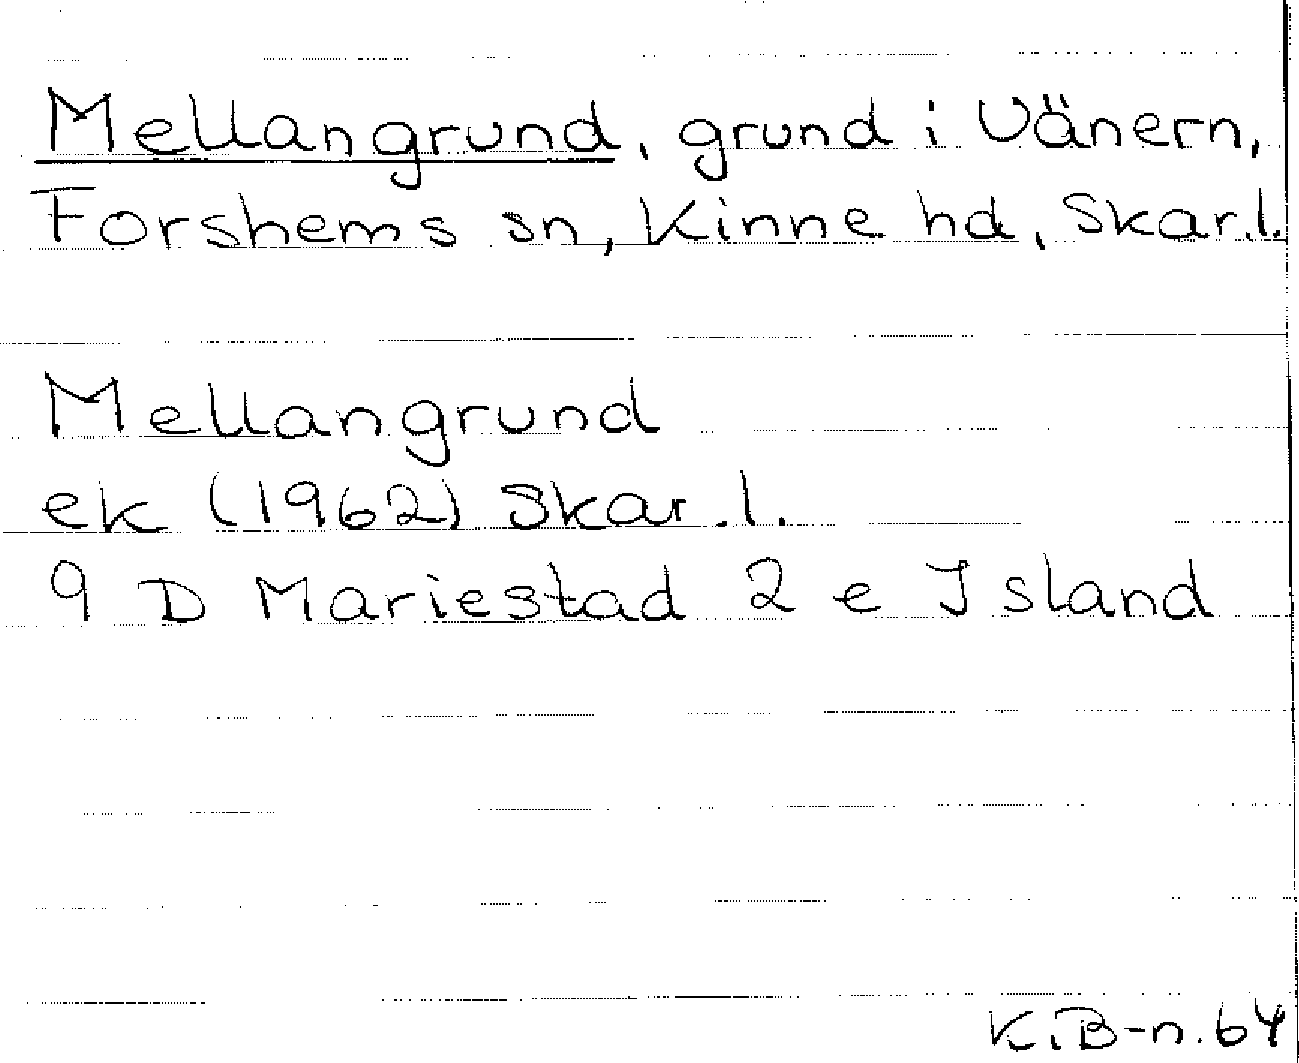 Mellangrund, grund i Vänern,
Forshems sn, Kinne hd, Skar.l.
Mellangrund
ek (1962) Skar.l.
9 D Mariestad 2 e Island
K.B-n. 64